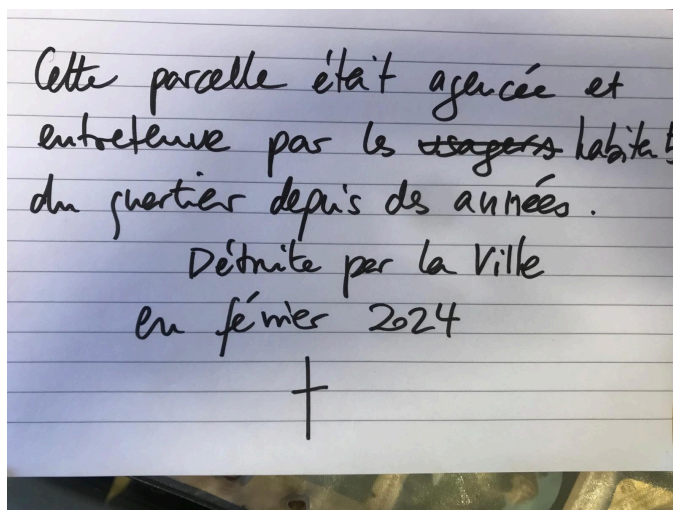 Cette parcelle était agencée et
entretenue par les usagers habitants
du quartier depuis des années.
Détruite par la Ville
en février 2024